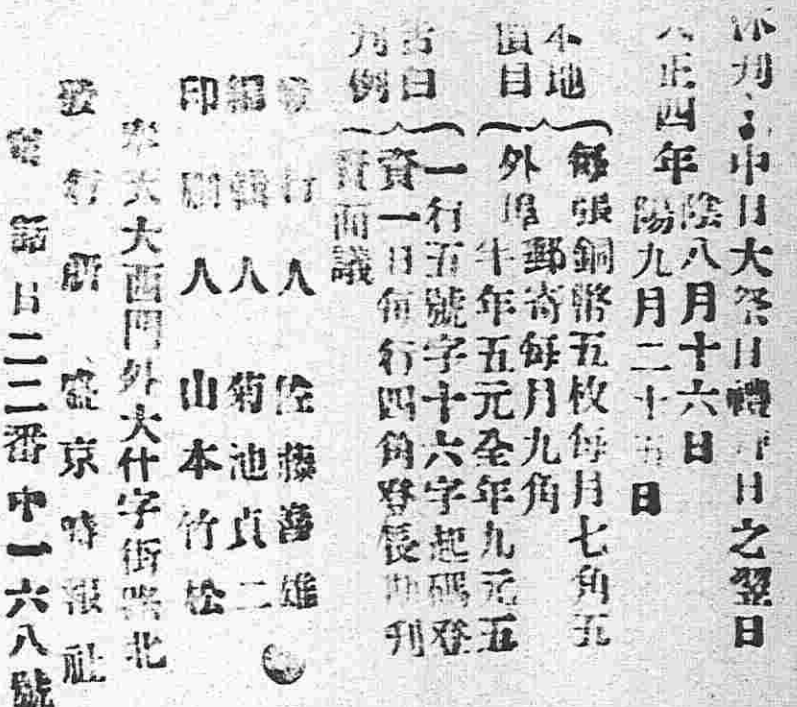 休刊 中日大祭日禮拜日之翌日
大正四年
陰八月十六日
陽九月二十五日
本地
價目
每張銅幣五枚每月七角五
外埠郵寄每月九角
半年五元全年九元五
告白
刊例
一行五號字十六字起碼登
資一日每行四角登長期刊
資面議
發行人 佐藤善雄
編輯人 菊池貞二
印刷人 山本竹松
奉天大西門外大什字街路北
發行所 盛京時報社
電話日二二番中一六八號